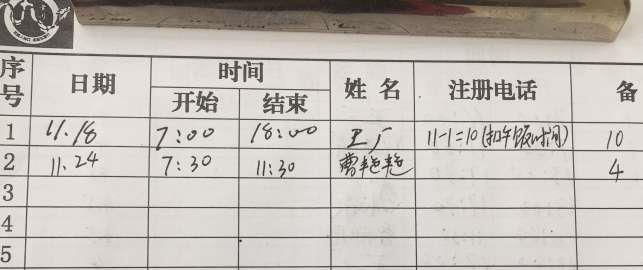 序号 日期 时间 开始 结束 姓名 注册电话 备
1 11.18 7:00 18:00 工厂 11-1=10(扣午饭时间) 10
2 11.24 7:30 11:30 曹艳艳 4
3
4
5